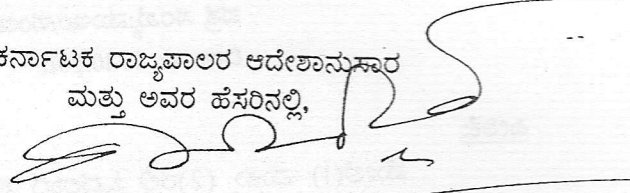 ಕರ್ನಾಟಕ ರಾಜ್ಯಪಾಲರ ಆದೇಶಾನುಸಾರ
ಮತ್ತು ಅವರ ಹೆಸರಿನಲ್ಲಿ,